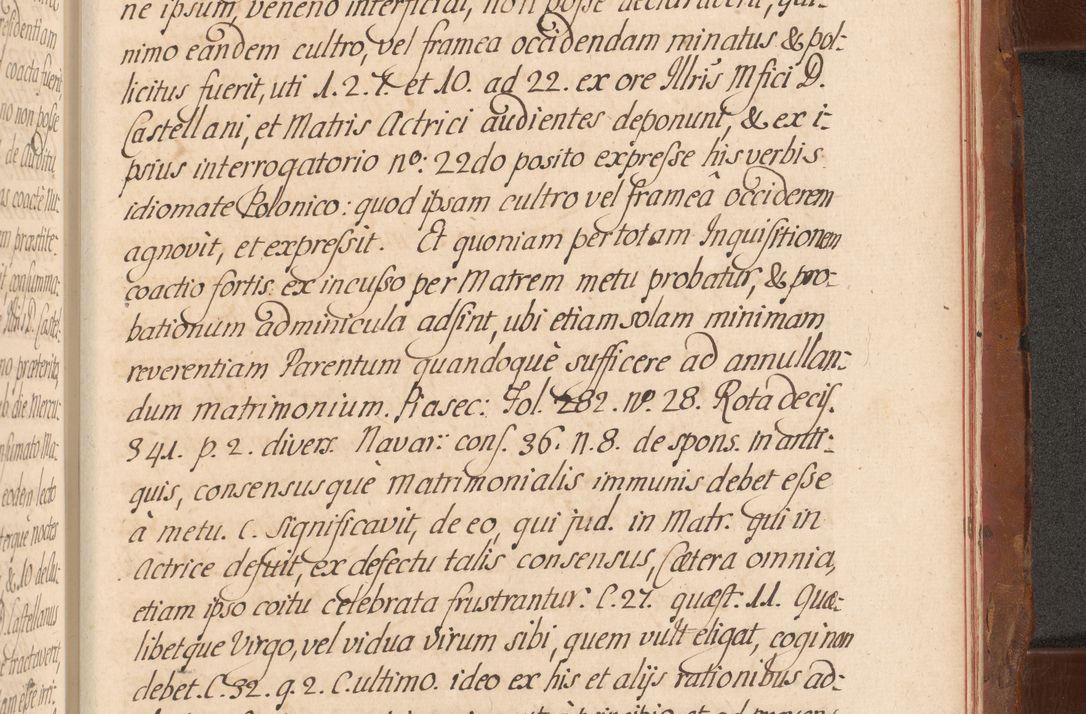 ne ipsum, veneno interficiat, non posse declaraverit, qui-
nimo eandem cultro, vel framea occidendam minatus & pol-
licitus fuerit, uti 1. 2. 7. et 10. ad 22. ex ore Illris Mfici D.
Castellani, et Matris Actrici audientes deponunt, & ex i-
psius interrogatorio nº: 22do posito expresse his verbis
idiomate Polonico: quod ipsam cultro vel frameâ occiderem
agnovit, et expressit. Et quoniam per totam Inquisitionem
coactio fortis ex incusso per Matrem metu probatur, & pro-
bationum adminicula adsint, ubi etiam solam minimam
reverentiam Parentum quandoquè sufficere ad annullan-
dum matrimonium. Piasec: Fol. 282. nº. 28. Rota decis.
341. p. 2. divers. Navar: cons. 36. n. 8. de spons. in anti-
quis, consensusquè matrimonialis immunis debet esse
à metu. C. significavit, de eo, qui jud. in Matr. qui in
Actrice defuit, ex defectu talis consensus, Cætera omnia,
etiam ipso coitu celebrata frustrantur. C. 27. quæst. 11. Quæ-
libetque Virgo, vel vidua virum sibi, quem vult eligat, cogi non
debet. C. 32. q. 2. C. ultimo. ideo ex his et alijs rationibus ad-